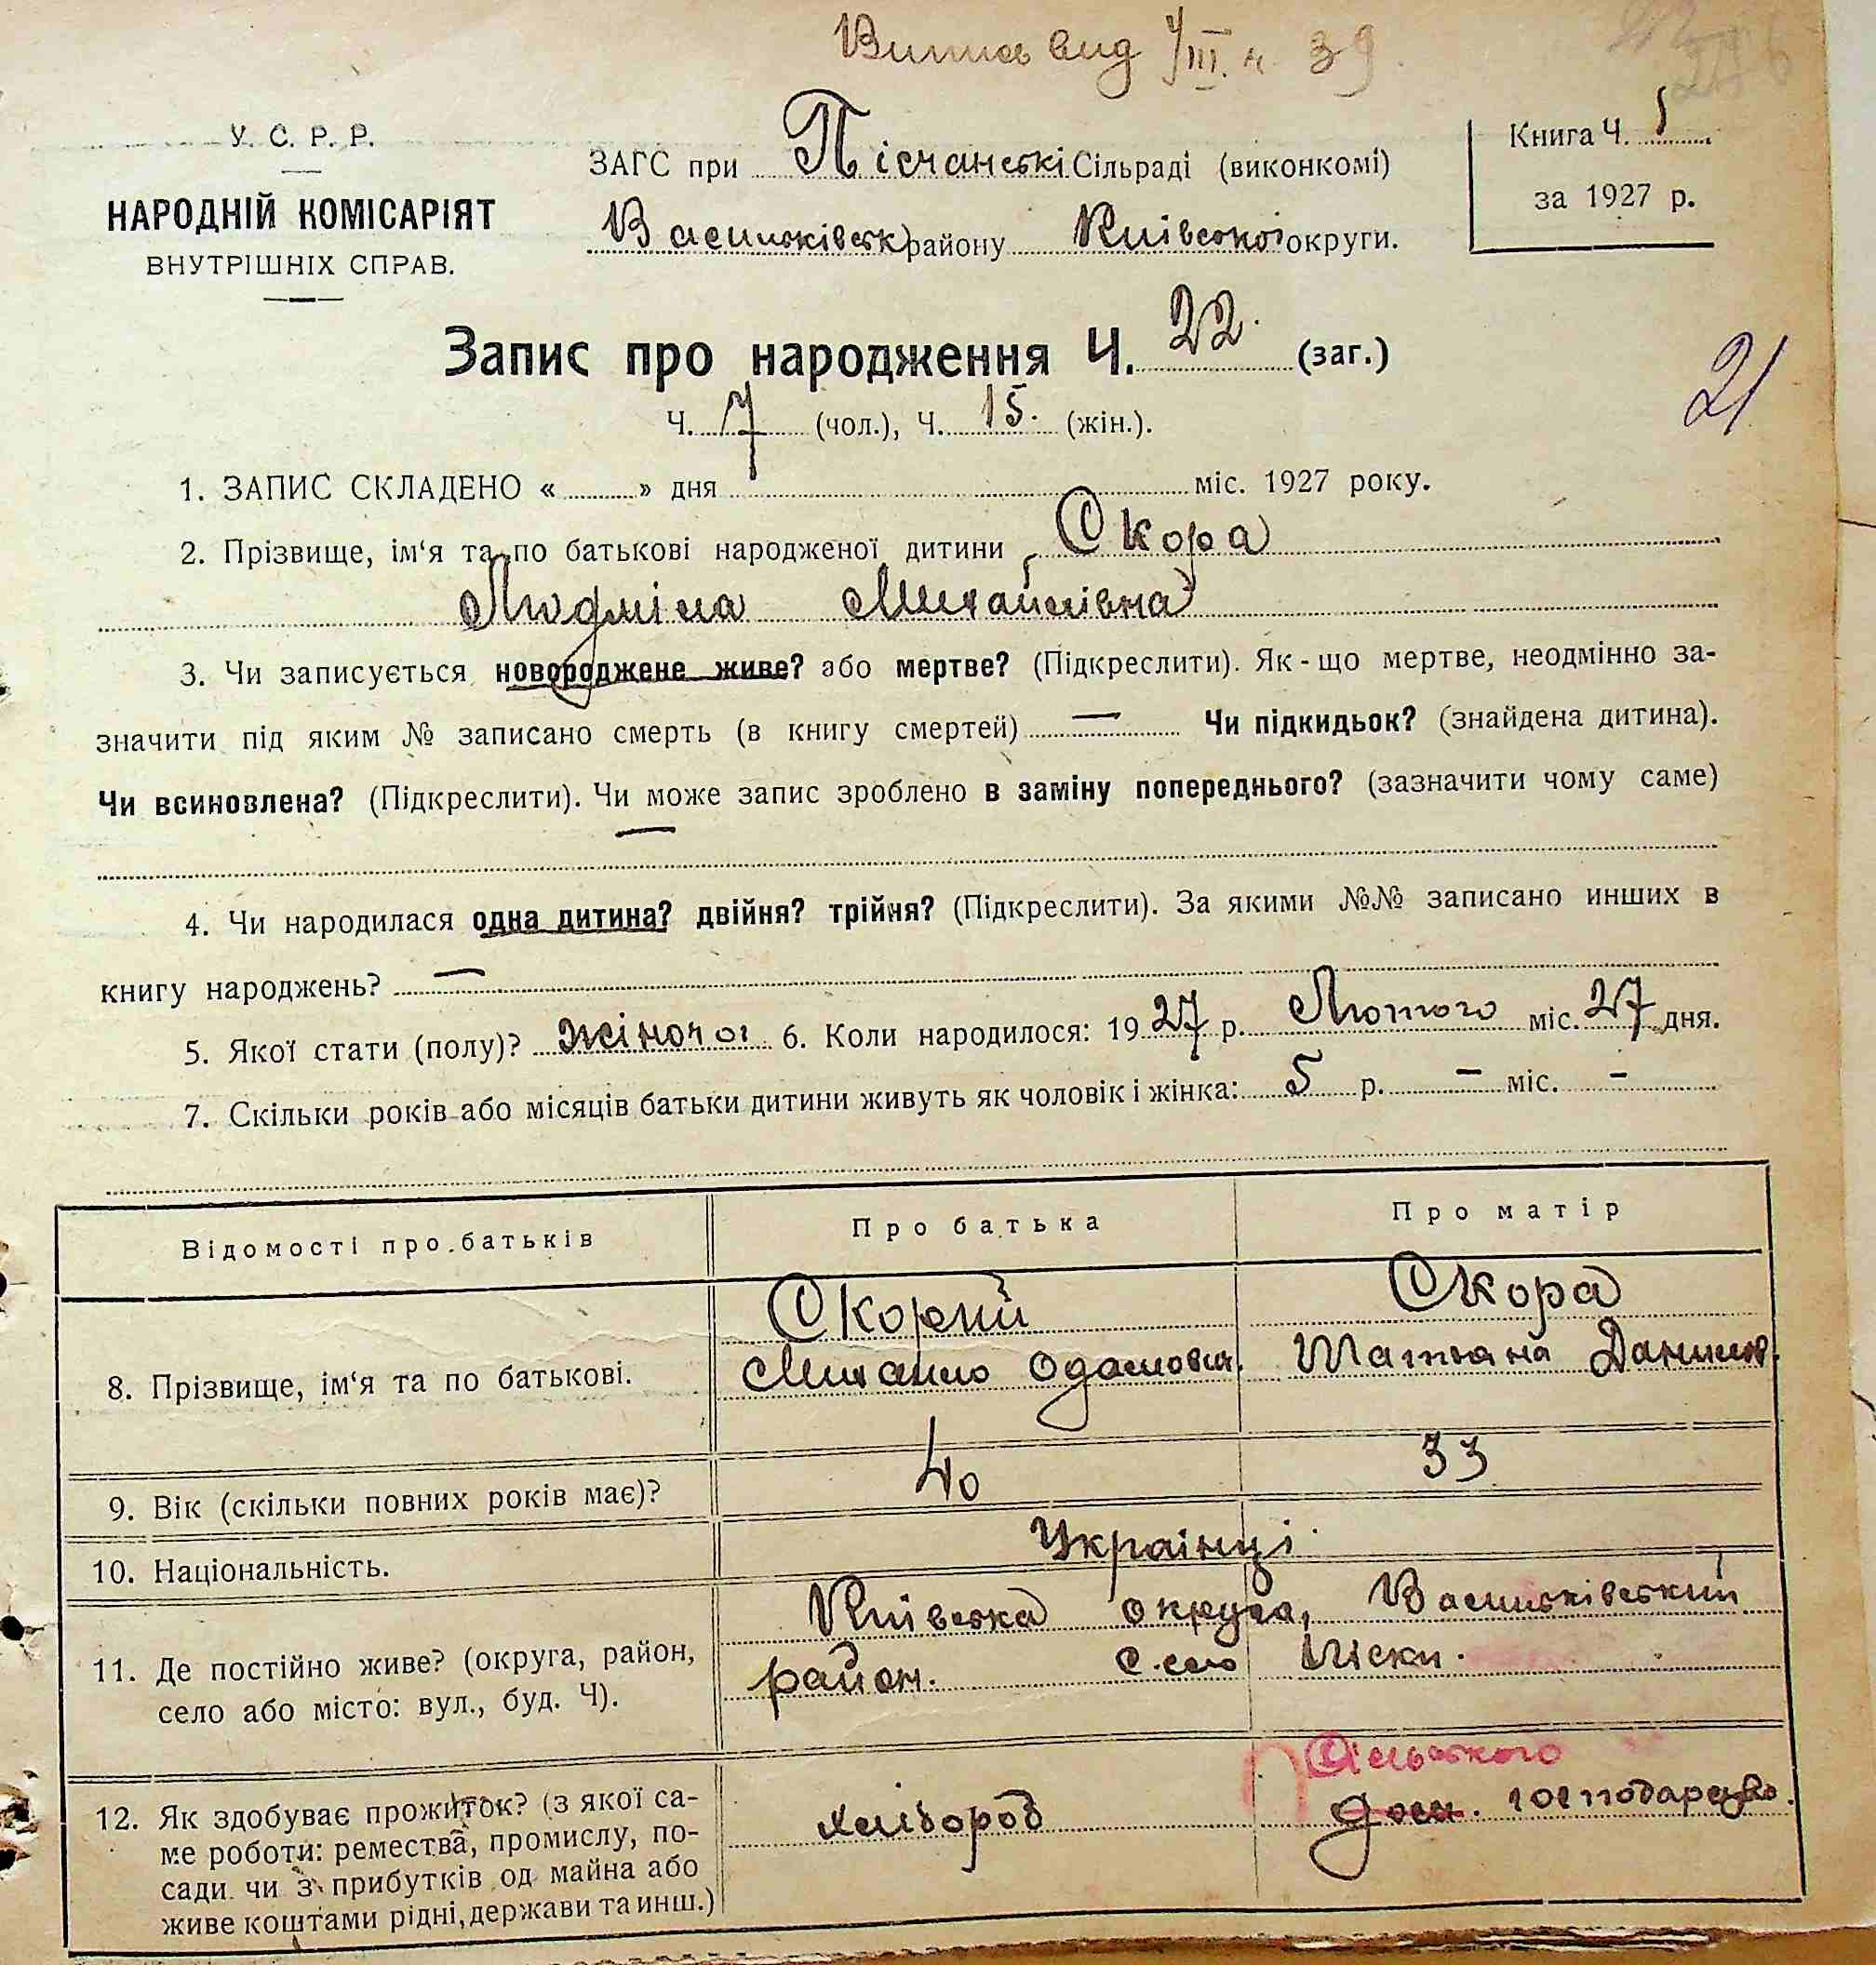 Випись вид 4/III. н. 39
У. С. Р. Р.
НАРОДНІЙ КОМІСАРІЯТ
ВНУТРІШНІХ СПРАВ.
ЗАГС при Пісчанські Сільраді (виконкомі)
Васильківськ району Київської округи.
Книга Ч. 1
за 1927 р.
Запис про народження Ч. 22. (заг.)
21
Ч. 7 (чол.), Ч. 15. (жін.).
1. ЗАПИС СКЛАДЕНО « » дня міс. 1927 року.
2. Прізвище, ім‘я та по батькові народженої дитини Скора
Людміла Михайлівна
3. Чи записується новороджене живе? або мертве? (Підкреслити). Як-що мертве, неодмінно за-
значити під яким № записано смерть (в книгу смертей) — Чи підкидьок? (знайдена дитина).
Чи всиновлена? (Підкреслити). Чи може запис зроблено в заміну попереднього? (зазначити чому саме)
—
4. Чи народилася одна дитина? двійня? трійня? (Підкреслити). За якими №№ записано инших в
книгу народжень? —
5. Якої стати (полу)? жіночої 6. Коли народилося: 1927 р. Лютого міс. 27 дня.
7. Скільки років або місяців батьки дитини живуть як чоловік і жінка: 5 р. – міс. –
Відомості про батьків Про батька Про матір
Скорий Скора
8. Прізвище, ім‘я та по батькові. Михайло Одамович. Татьяна Данилов.
9. Вік (скільки повних років має)? 40 33
10. Національність. Українці.
Київська округа, Васильківський
11. Де постійно живе? (округа, район, район. село Піски.
село або місто: вул., буд. Ч).
Сільського
12. Як здобуває прожиток? (з якої са- хлібороб дом. господарство.
ме роботи: ремества, промислу, по-
сади чи з прибутків од майна або
живе коштами рідні, держави та инш.)